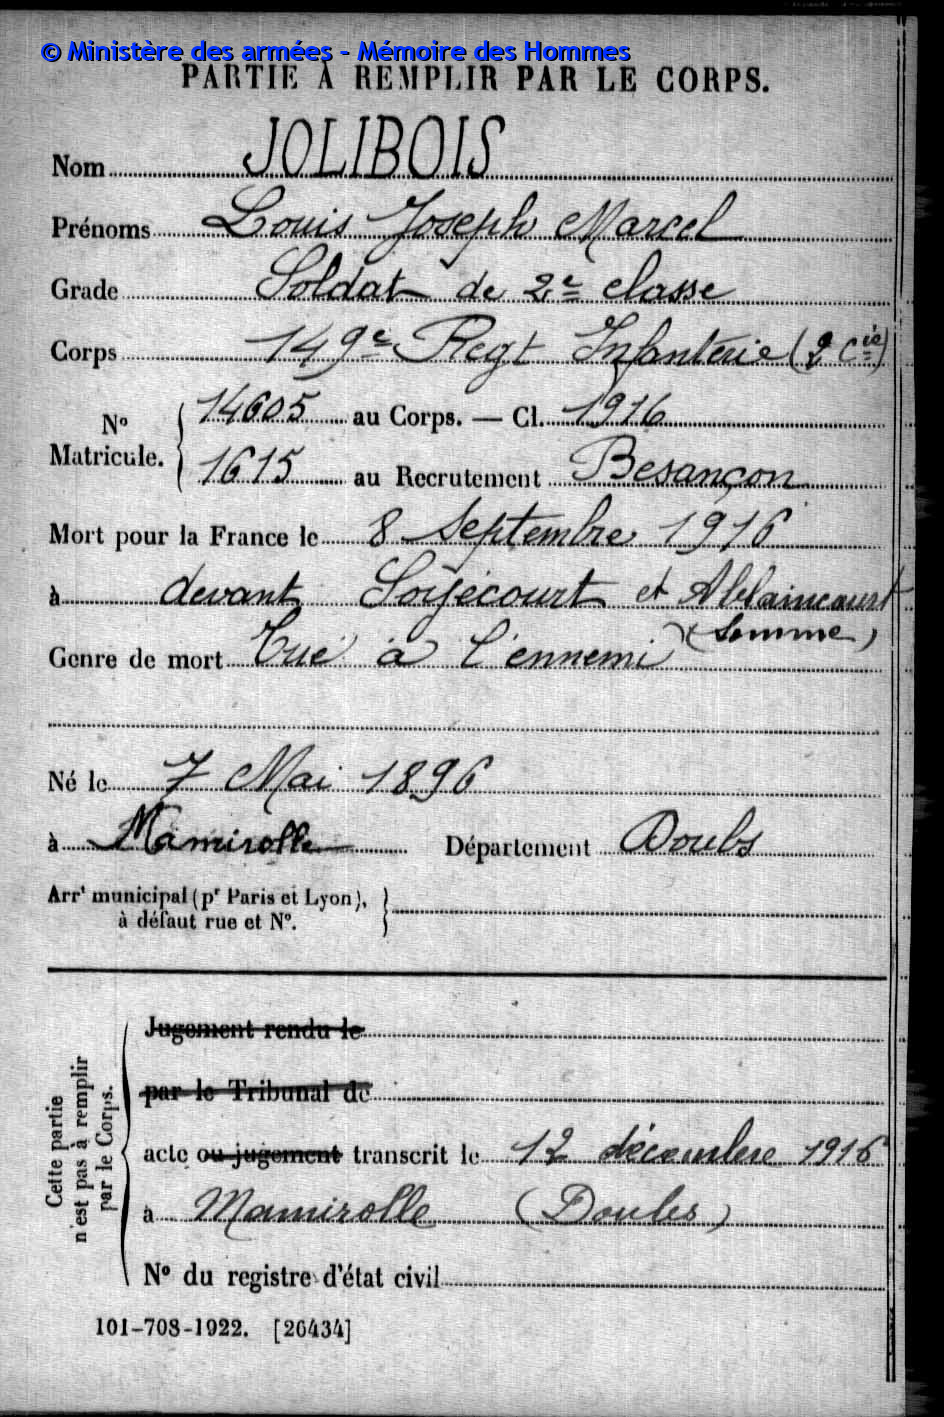 © Ministère des armées - Mémoire des Hommes
PARTIE À REMPLIR PAR LE CORPS.
Nom JOLIBOIS
Prénoms Louis Joseph Marcel
Grade Soldat de 2e classe
Corps 149e Regt Infanterie (2 Cie)
No Matricule. 14605 au Corps. — Cl. 1916
1615 au Recrutement Besançon
Mort pour la France le 8 Septembre 1916
à devant Soyécourt et Ablaincourt
(Somme)
Genre de mort Tué à l'ennemi
Né le 7 Mai 1896
à Mamirolle Département Doubs
Arrt municipal (pr Paris et Lyon),
à défaut rue et No.
Cette partie
n'est pas à remplir
par le Corps.
Jugement rendu le
par le Tribunal de
acte ou jugement transcrit le 12 décembre 1916
à Mamirolle (Doubs)
No du registre d'état civil
101-708-1922. [26434]